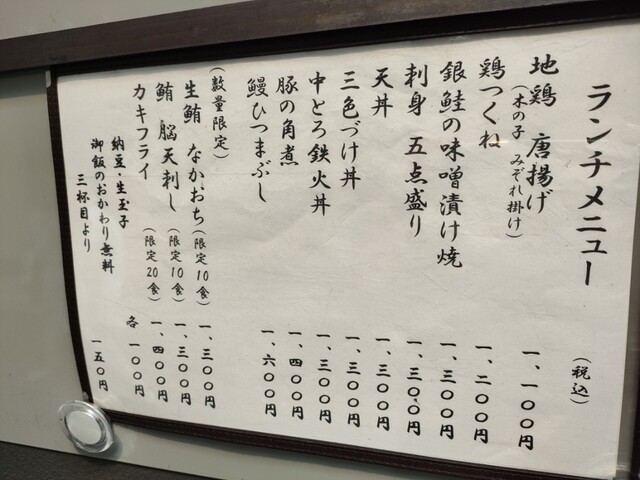 ランチメニュー (税込)
地鶏 唐揚げ 一、一〇〇円
(木の子 みぞれ掛け)
鶏つくね 一、二〇〇円
銀鮭の味噌漬け焼 一、三〇〇円
刺身 五点盛り 一、三〇〇円
天丼 一、三〇〇円
三色づけ丼 一、三〇〇円
中とろ鉄火丼 一、三〇〇円
豚の角煮 一、四〇〇円
鰻ひつまぶし 一、六〇〇円
(数量限定)
生鮪 なかおち(限定10食) 一、三〇〇円
鮪 脳天刺し(限定10食) 一、三〇〇円
カキフライ (限定20食) 一、四〇〇円
納豆・生玉子 各 一〇〇円
御飯のおかわり無料
三杯目より 一五〇円